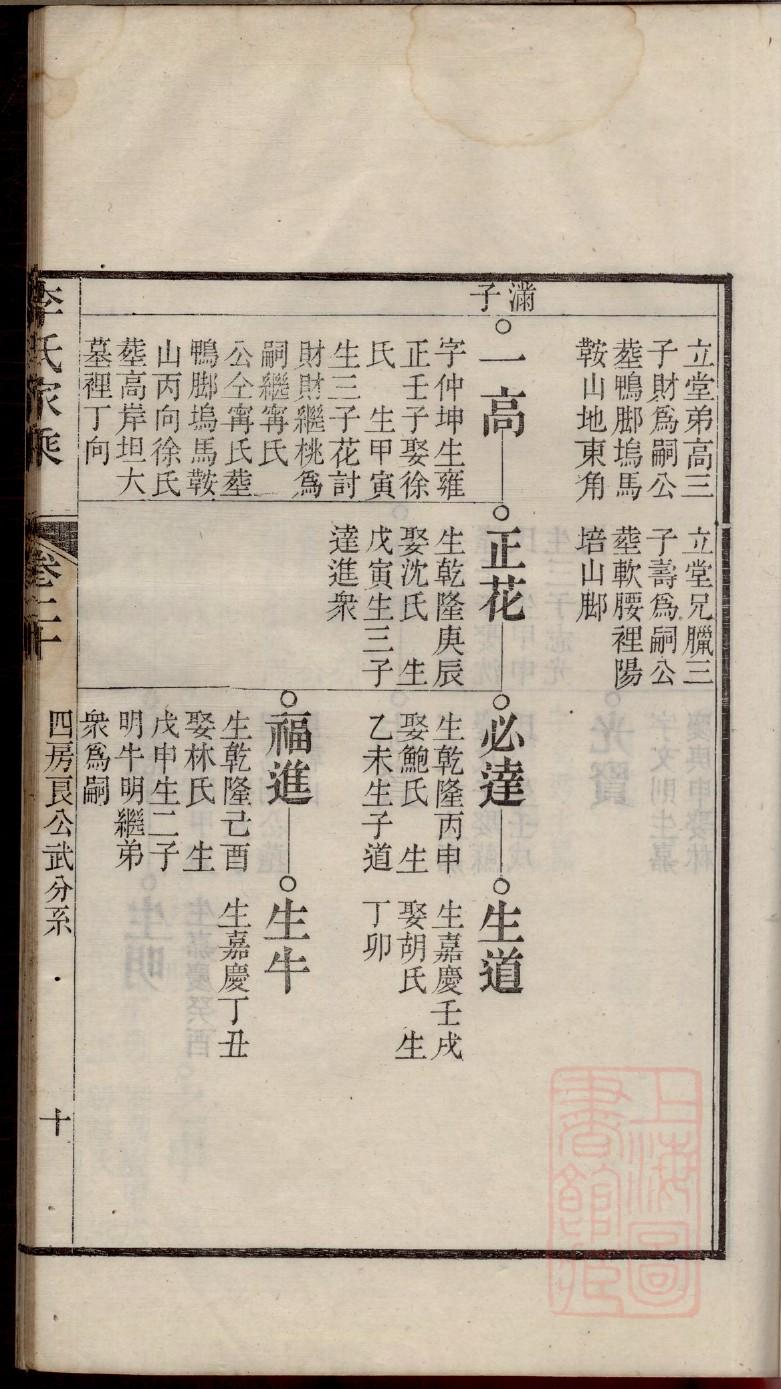 立堂弟高三
子財爲嗣公
葬鴨脚塢馬
鞍山地東角
立堂兄臘三
子壽爲嗣公
葬軟腰裡陽
培山脚
滿子
一高
字仲坤生雍
正壬子娶徐
氏　生甲寅
生三子花討
財財繼桃爲
嗣繼甯氏
公仝甯氏葬
鴨脚塢馬鞍
山丙向徐氏
葬高岸坦大
墓裡丁向
正花
生乾隆庚辰
娶沈氏　生
戊寅生三子
達進衆
必達
生乾隆丙申
娶鮑氏　生
乙未生子道
生道
生嘉慶壬戌
娶胡氏　生
丁卯
福進
生乾隆己酉
娶林氏　生
戊申生二子
明牛明繼弟
衆爲嗣
生牛
生嘉慶丁丑
李氏家乘
卷二十
四房良公武分系
十
上海圖書館藏